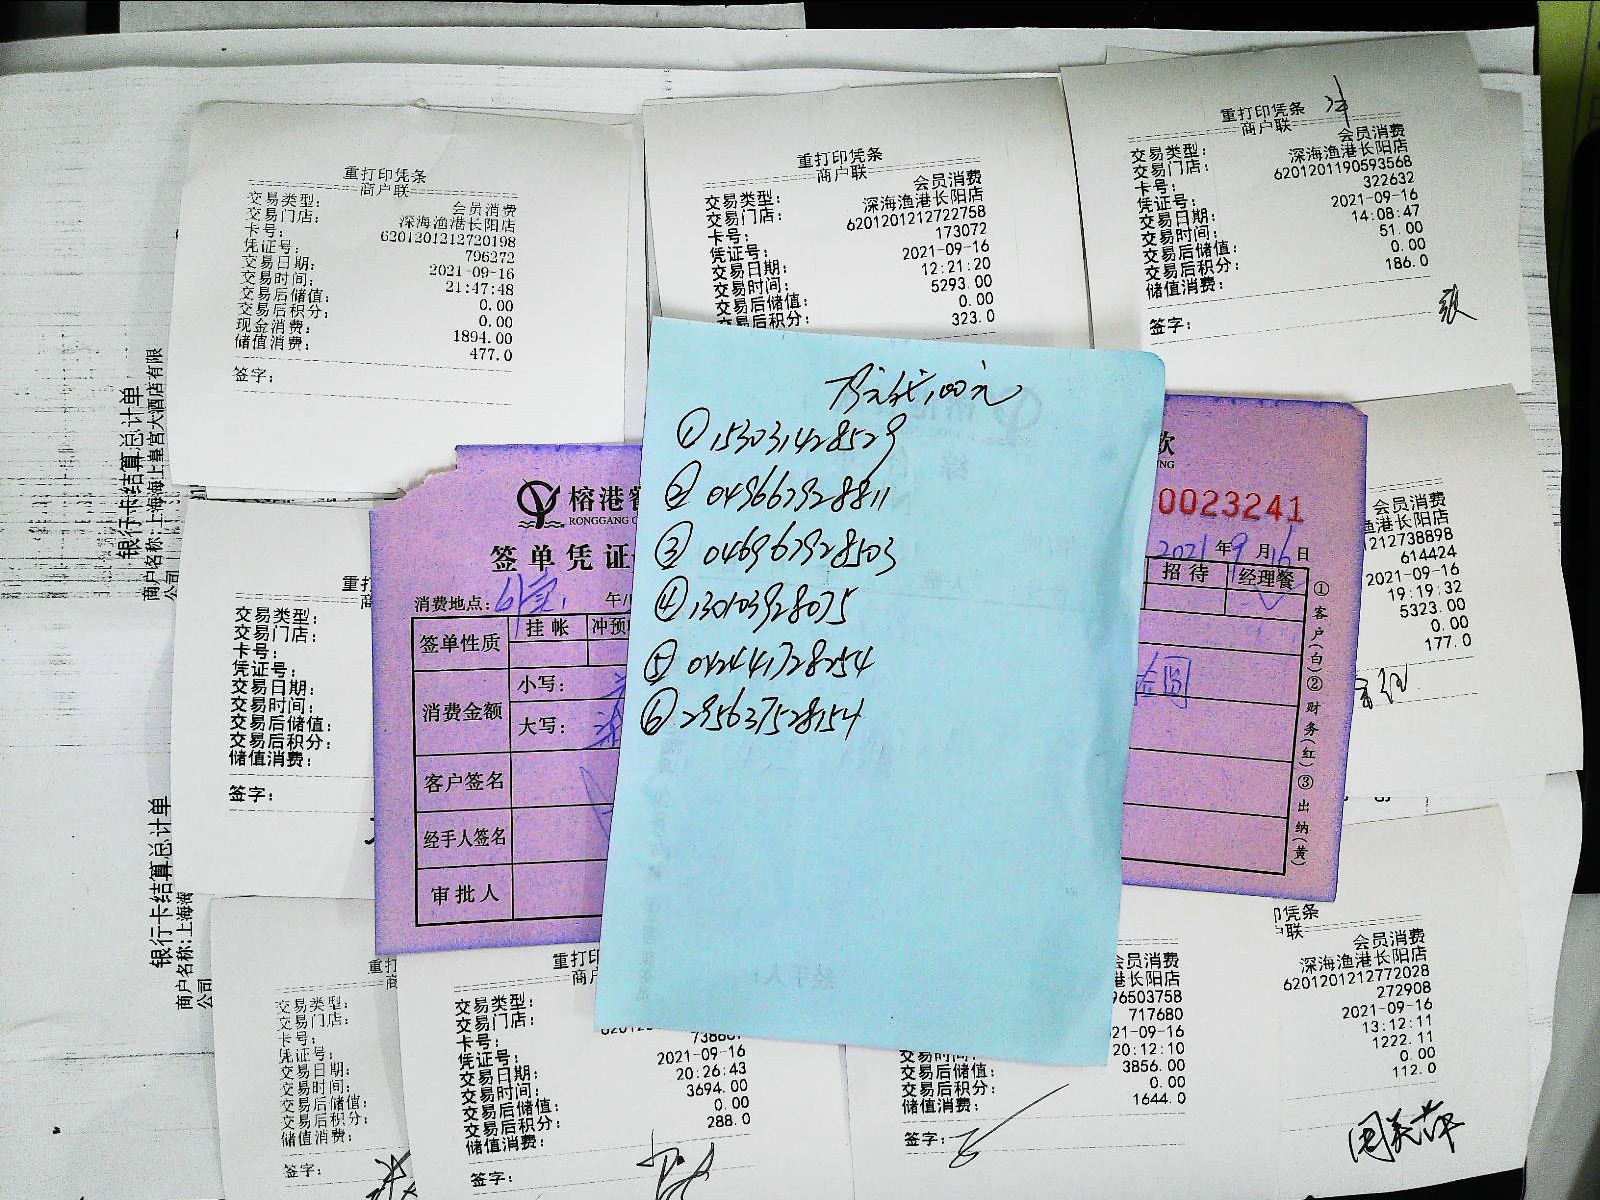 重打印凭条
商户联
交易类型: 会员消费
交易门店: 深海渔港长阳店
卡号: 6201201212720198
凭证号: 796272
交易日期: 2021-09-16
交易时间: 21:47:48
交易后储值: 0.00
交易后积分: 0.00
现金消费: 1894.00
储值消费: 477.0
签字:
重打印凭条
商户联
交易类型: 会员消费
交易门店: 深海渔港长阳店
卡号: 6201201212722758
凭证号: 173072
交易日期: 2021-09-16
交易时间: 12:21:20
交易后储值: 5293.00
交易后积分: 0.00
323.0
重打印凭条
商户联
交易类型: 会员消费
交易门店: 深海渔港长阳店
卡号: 6201201190593568
凭证号: 322632
交易日期: 2021-09-16
交易时间: 14:08:47
交易后储值: 51.00
交易后积分: 0.00
储值消费: 186.0
签字:
银行卡结算总计单
商户名称:上海海上皇宫大酒店有限
公司
100元
①153031428529
②049667928811
③046967928503
④130103928075
⑤042441728254
⑥295637528154
榕港
RONGGANG
签单凭证
消费地点:
签单性质 挂帐
消费金额 小写:
大写:
客户签名
经手人签名
审批人
款
0023241
2021年9月16日
招待 经理餐
①客户(白)②财务(红)③出纳(黄)
会员消费
渔港长阳店
1212738898
614424
2021-09-16
19:19:32
5323.00
0.00
177.0
重打
商
交易类型:
交易门店:
卡号:
凭证号:
交易日期:
交易时间:
交易后储值:
交易后积分:
储值消费:
签字:
银行卡结算总计单
商户名称:上海海
公司
重打
商
交易类型:
交易门店:
卡号:
凭证号:
交易日期:
交易时间:
交易后储值:
交易后积分:
储值消费:
签字:
重打印
商户联
交易类型:
交易门店:
卡号:
凭证号:
交易日期: 2021-09-16
交易时间: 20:26:43
交易后储值: 3694.00
交易后积分: 0.00
储值消费: 288.0
签字:
会员消费
港长阳店
96503758
717680
21-09-16
交易时间: 20:12:10
交易后储值: 3856.00
交易后积分: 0.00
储值消费: 1644.0
签字:
印凭条
户联
会员消费
深海渔港长阳店
6201201212772028
272908
2021-09-16
13:12:11
1222.11
0.00
112.0
周美萍